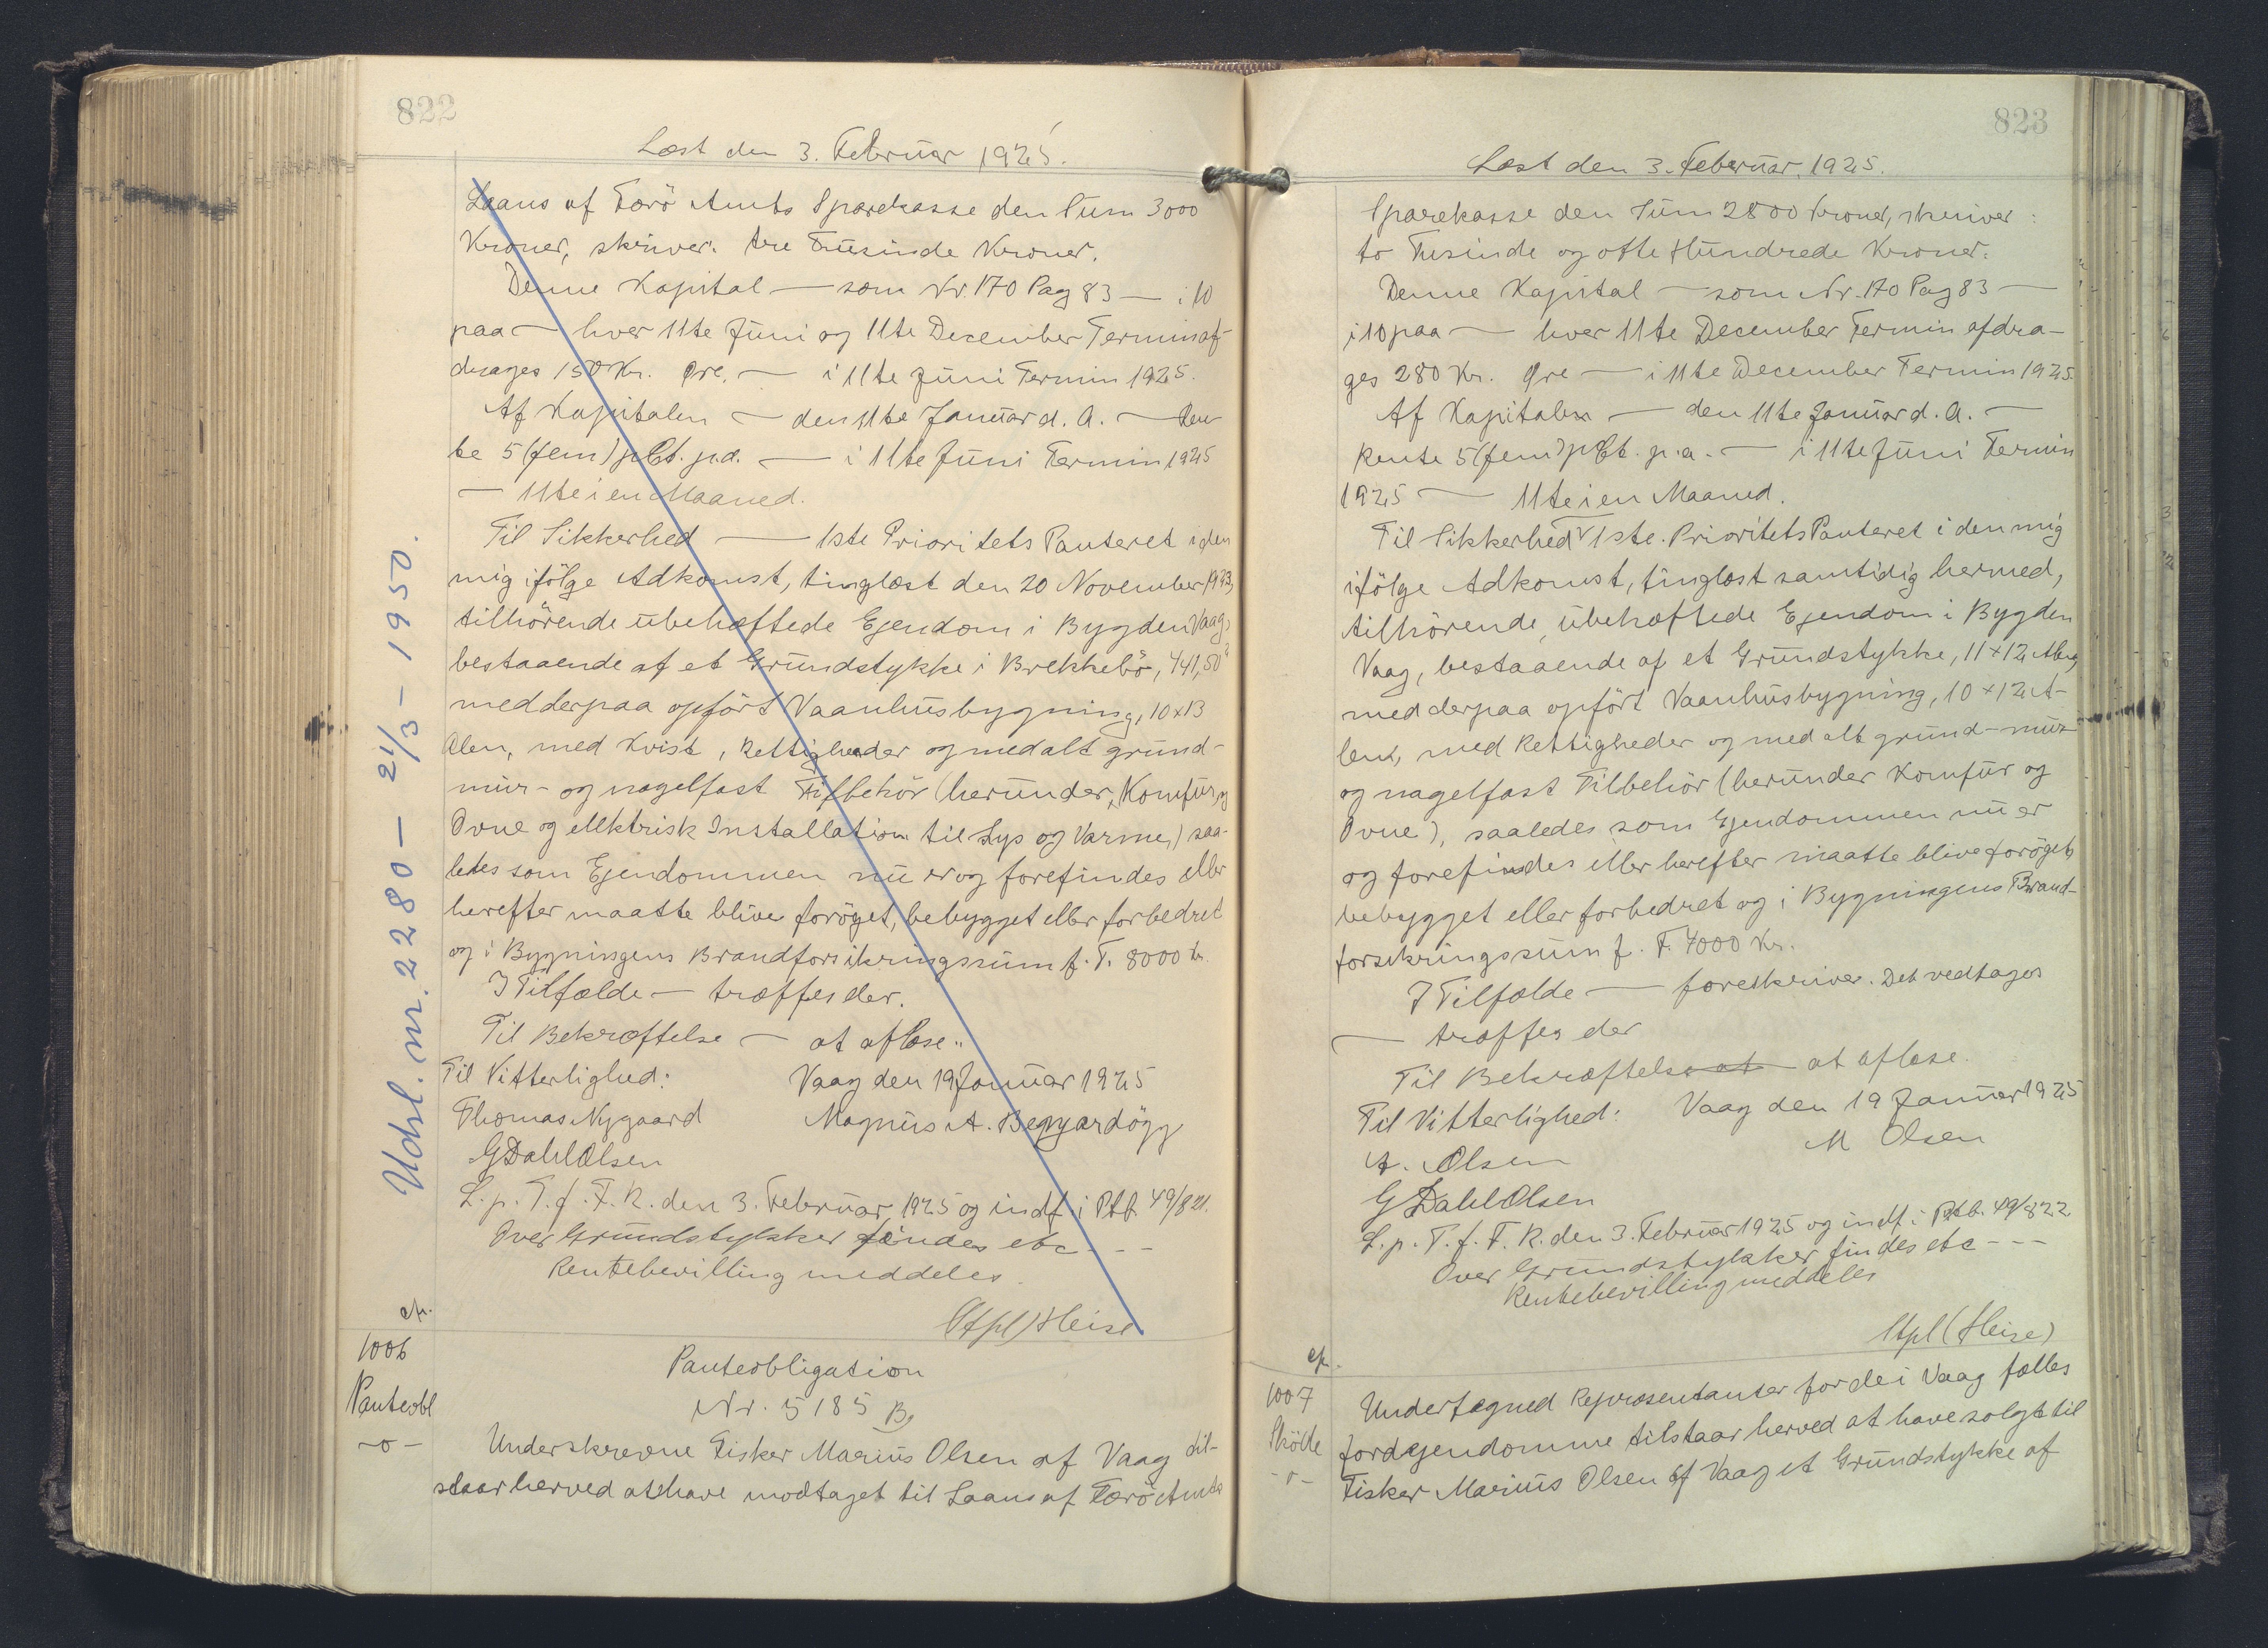 822
Læst den 3. Februar 1925.
Laans af Færö Amts Sparekasse den Sum 3000
Kroner, skriver: tre Tusinde Kroner.
Denne Kapital — som Nr. 170 Pag 83 — i 10
paa — hver 11te Juni og 11te December Termin af-
drages 150 Kr. Øre. — i 11te Juni Termin 1925.
Af Kapitalen — den 11te Januar d. A. — Ren-
te 5 (fem) pCt. p.a. — i 11te Juni Termin 1925
— 11te i en Maaned.
Til Sikkerhed — 1ste Prioritets Panteret i den
mig ifölge Adkomst, tinglæst den 20 November 1923,
tilhörende ubehæftede Ejendom i Bygden Vaag,
bestaaende af et Grundstykke i Brekkebö, 441,50²
med derpaa opfört Vaanhusbygning, 10x13
Alen, med Kvist, Rettigheder og med alt grund-
mur- og nagelfast Tilbehör (herunder, Komfur, og
Ovne og elektrisk Installation til Lys og Varme) saa-
ledes som Ejendommen nu er og forefindes eller
herefter maatte blive foröget, bebygget eller forbedret
og i Bygningens Brandforsikringssum f. T. 8000 Kr.
I Tilfælde — træffes der.
Til Bekræftelse — at aflæse.
Til Vitterlighed: Vaag den 19 Januar 1925
Thomas Nygaard Magnus A.
G Dahl Olsen
L. p. T. f. F. R. den 3. Februar 1925 og indf. i Ptb. 49/821.
Over Grundstykker findes etc - - -
Rentebevilling meddeles.
(Stpl) Heise
Udsl. nr. 2280 — 21/3 – 1950.
1006
Panteobl
-o-
Panteobligation
Nr. 5185 B.
Underskrevne Fisker Marius Olsen af Vaag til-
staar herved at have modtaget til Laans af Færö Amts
823
Læst den 3. Februar, 1925.
Sparekasse den Sum 2800 Kroner, skriver:
to Tusinde og otte Hundrede Kroner.
Denne Kapital — som Nr. 170 Pag 83 —
i 10 paa — hver 11te December Termin afdra-
ges 280 Kr. Øre — i 11te December Termin 1925.
Af Kapitalen — den 11te Januar d. A. —
Rente 5 (fem) pCt. p.a. — i 11te Juni Termin
1925 — 11te i en Maaned.
Til Sikkerhed — 1ste Prioritets Panteret i den mig
ifölge Adkomst, tinglæst samtidig hermed,
tilhörende, ubehæftede Ejendom i Bygden
Vaag, bestaaende af et Grundstykke, 11x12 Alen,
med derpaa opfört Vaanhusbygning, 10x12 A-
len, med Rettigheder og med alt grund-mur
og nagelfast Tilbehör (herunder Komfur og
Ovne), saaledes som Ejendommen nu er
og forefindes eller herefter maatte blive foröget,
bebygget eller forbedret og i Bygningens Brand-
forsikringssum f. T. 4000 Kr.
I Tilfælde — foreskriver. Det vedtages
— træffes der
Til Bekræftelse at at aflæse.
Til Vitterlighed: Vaag den 19 Januar 1925
A. Olsen M Olsen
G Dahl Olsen
L. p. T. f. F. R. den 3. Februar 1925 og indf. i Ptb. 49/822
Over Grundstykker findes etc - - -
Rentebevilling meddeles
Stpl (Heise)
1007
Sköde
-o-
Undertegned Repræsentanter for de i Vaag fælles
Jordejendomme tilstaar herved at have solgt til
Fisker Marius Olsen af Vaag et Grundstykke af